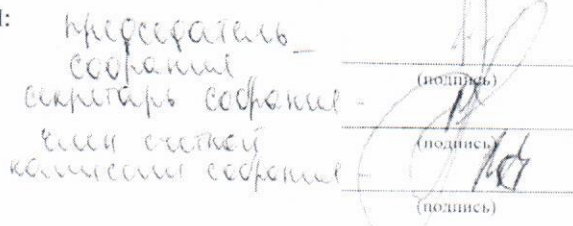 председатель –
собрания
(подпись)
секретарь собрания –
(подпись)
член счетной
комиссии собрания –
(подпись)